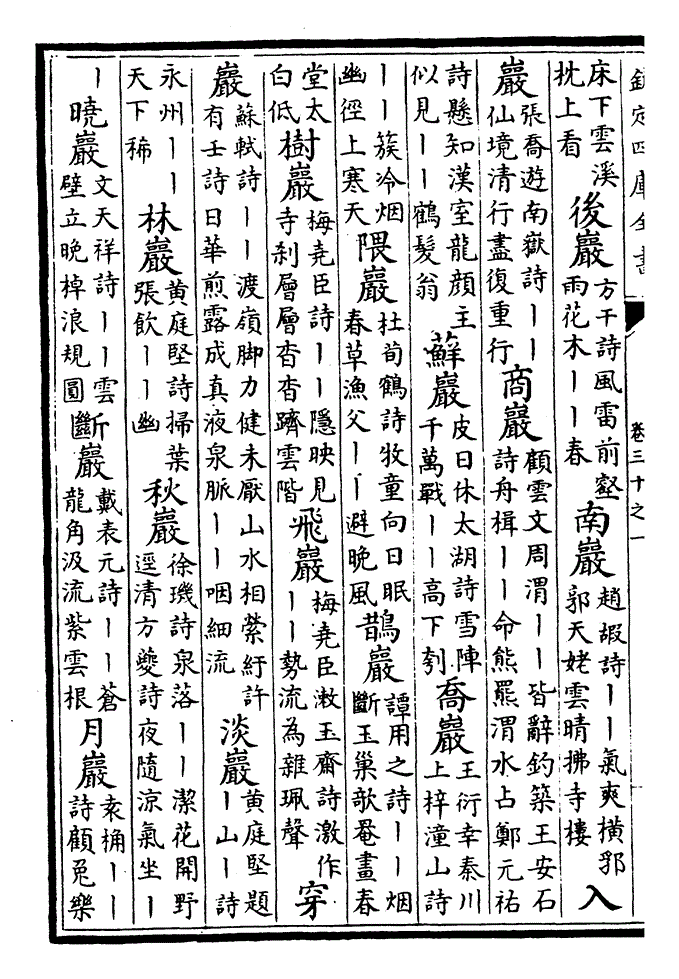 欽定四庫全書 卷三十之一
床下雲溪枕上看 後巖 方干詩風雷前壑雨花木丨丨春 南巖 趙嘏詩丨丨氣爽橫郛郭天姥雲晴拂寺樓 入
巖 張喬遊南嶽詩丨丨仙境清行盡復重行 商巖 顧雲文周渭丨丨皆辭釣築王安石詩舟楫丨丨命熊羆渭水占鄭元祐
詩懸知漢室龍顏主似見丨丨鶴髮翁 蘚巖 皮日休太湖詩雪陣千萬戰丨丨高下刳 喬巖 王衍幸秦川上梓潼山詩
丨丨簇冷烟幽徑上寒天 隈巖 杜荀鶴詩牧童向日眠春草漁父丨丨避晚風 鵲巖 譚用之詩丨丨烟斷玉巢歌罨畫春
堂太白低 樹巖 梅堯臣詩丨丨隱映見寺刹層層杳杳躋雲階 飛巖 梅堯臣漱玉齋詩激作丨丨勢流為雜珮聲 穿
巖 蘇軾詩丨丨渡嶺脚力健未厭山水相縈紆許有壬詩日華煎露成真液泉脈丨丨咽細流 淡巖 黃庭堅題丨山丨詩
永州丨丨天下稀 林巖 黃庭堅詩掃葉張飲丨丨幽 秋巖 徐璣詩泉落丨丨潔花開野逕清方夔詩夜隨涼氣坐丨
丨 曉巖 文天祥詩丨丨雲壁立晚棹浪規圓 斷巖 戴表元詩丨丨蒼龍角汲流紫雲根 月巖 袁桷丨丨詩顧兔樂